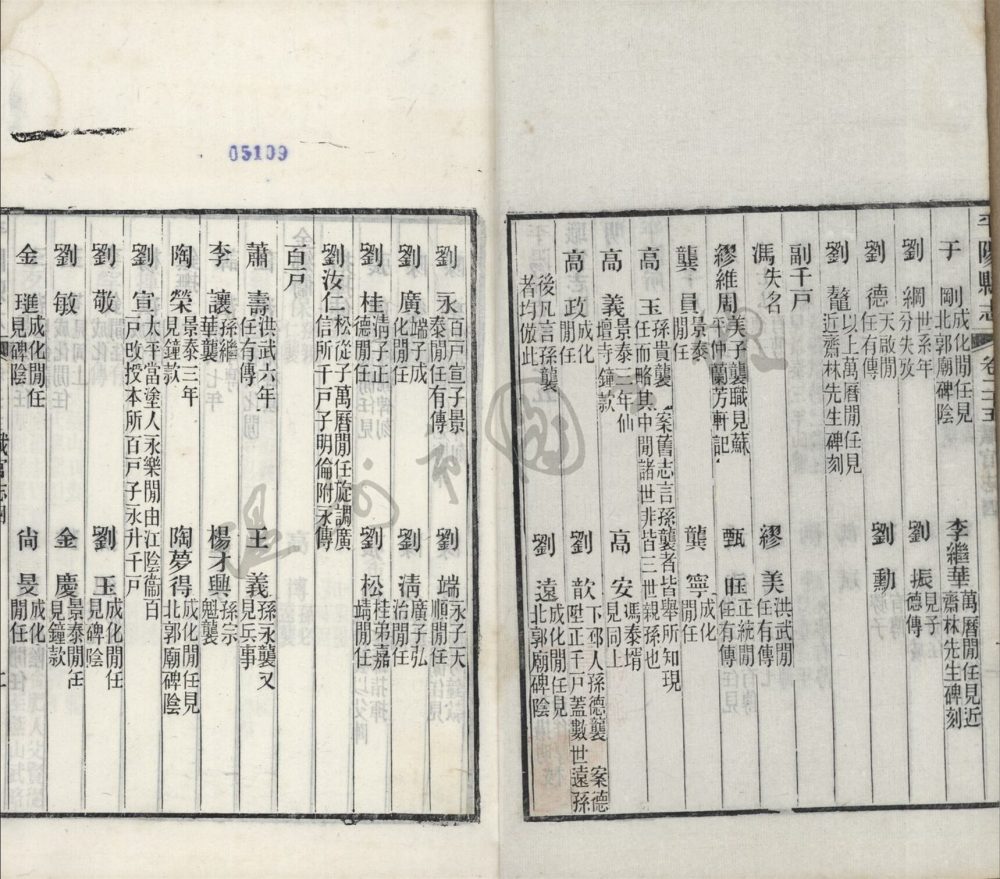 平陽縣志 卷二十五 職官志四
于剛 成化閒任見北郭廟碑陰 李繼華 萬曆閒任見近齋林先生碑刻
劉綱 世系年分失攷 劉振 見子德傳
劉德 天啟閒任有傳 劉勳
劉鼇 以上萬曆閒任見近齋林先生碑刻
副千戶
馮失名 繆美 洪武閒任有傳
繆維周 美子襲職見蘇平仲蘭芳軒記 甄旺 正統閒任有傳
龔員 景泰閒任 龔寧 成化閒任
高玉 孫貴襲 案舊志言孫襲者皆舉所知現任而略其中閒諸世非皆三世親孫也
高義 景泰三年仙壇寺鐘款 高安 馮泰壻見同上
高政 成化閒任 劉歆 下邳人孫德襲 案德陞正千戶蓋數世遠孫
後凡言孫襲者均倣此 劉遠 成化閒任見北郭廟碑陰
05109
劉永 百戶宣子景泰閒任有傳 劉端 永子天順閒任
劉廣 端子成化閒任 劉淸 廣子弘治閒任
劉桂 淸子正德閒任 劉松 桂弟嘉靖閒任
劉汝仁 松從子萬曆閒任旋調廣信所千戶子明倫附永傳
百戶
蕭壽 洪武六年任有傳 王義 孫永襲又見兵事
李讓 孫繼華襲 楊才興 孫宗魁襲
陶榮 景泰三年見鐘款 陶夢得 成化閒任見北郭廟碑陰
劉宣 太平當塗人永樂閒由江陰衞百戶改授本所百戶子永升千戶
劉敬 劉玉 成化閒任見碑陰
劉敏 金慶 景泰閒任見鐘款
金璡 成化閒任見碑陰 尙旻 成化閒任